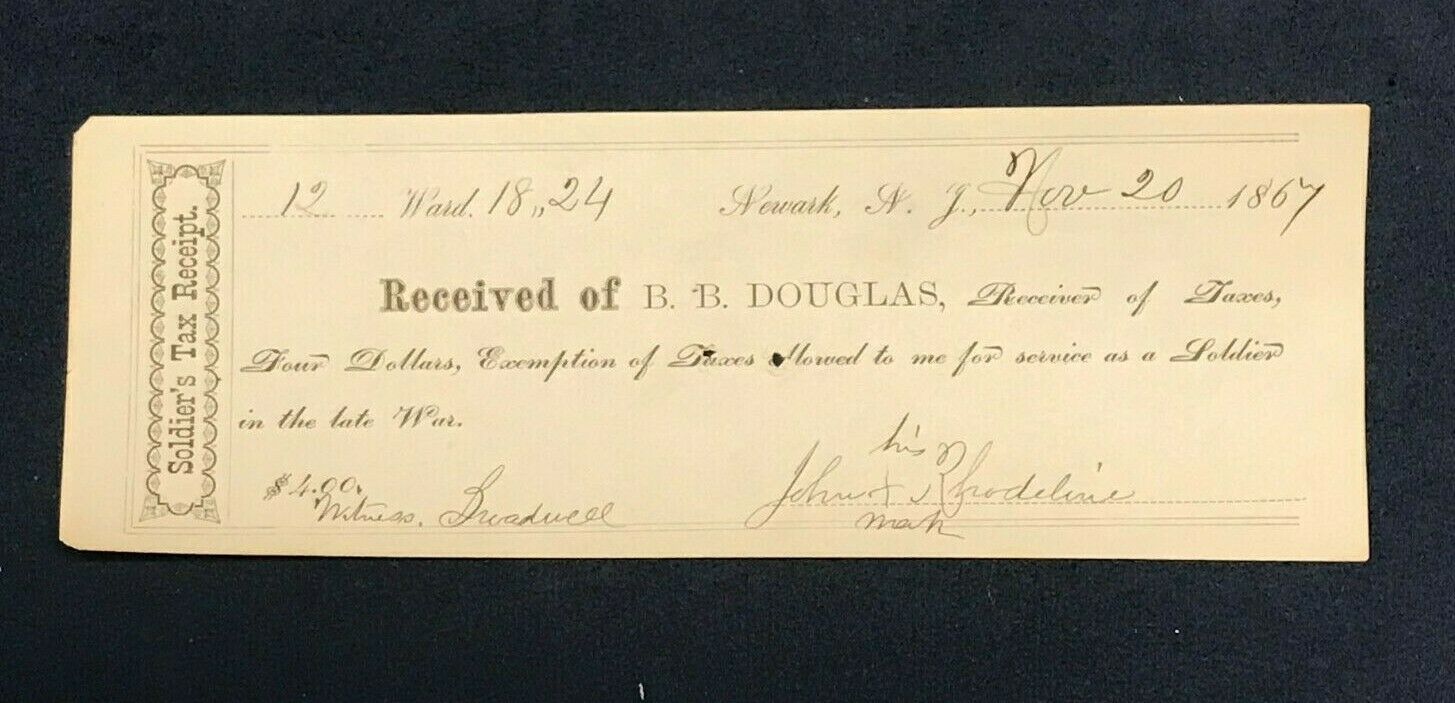 Soldier's Tax Receipt.
12 Ward. 18,,24 Newark, N. J., Nov 20 1867
Received of B. B. DOUGLAS, Receiver of Taxes,
Four Dollars, Exemption of Taxes allowed to me for service as a Soldier
in the late War.
his
$4.00. John + Rhodeline
Witness, Treadwell mark